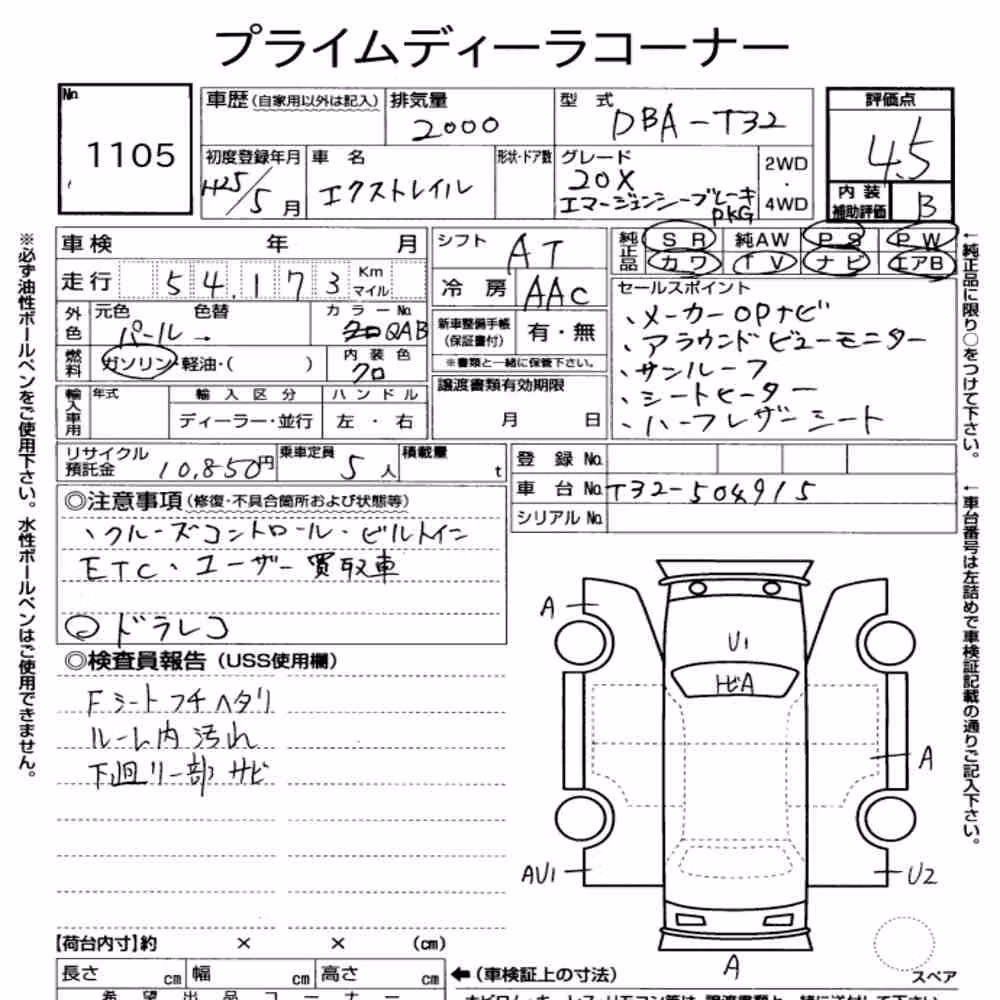 プライムディーラコーナー
No. 1105
車歴(自家用以外は記入)
排気量 2000
型式 DBA-T32
評価点 4.5
初度登録年月 H25/5月
車名 エクストレイル
形状・ドア数
グレード 20X
エマージェンシーブレーキ
PKG
2WD・4WD
内装補助評価 B
車検 年 月
シフト AT
純正品 SR 純AW PS PW
カワ TV ナビ エアB
走行 54,173 Km マイル
冷房 AAC
セールスポイント
、メーカーOPナビ
、アラウンドビューモニター
、サンルーフ
、シートヒーター
、ハーフレザーシート
外色 元色 パール→ 色替 カラーNo. QAB
新車整備手帳(保証書付) 有・無
※書類と一緒に保管下さい。
燃料 ガソリン・軽油・( )
内装色 クロ
譲渡書類有効期限
月 日
輸入車用 年式 輸入区分 ハンドル
ディーラー・並行 左・右
リサイクル預託金 10,850円
乗車定員 5人
積載量 t
登録No.
車台No. T32-504915
シリアルNo.
◎注意事項(修復・不具合箇所および状態等)
、クルーズコントロール・ビルトイン
ETC、ユーザー買取車
ドラレコ
◎検査員報告(USS使用欄)
Fシートフチヘタリ
ルーム内汚れ
下廻リ一部サビ
A
U1
トビA
A
AU1
U2
A
スペア
【荷台内寸】約 × × (cm)
長さ cm 幅 cm 高さ cm
←(車検証上の寸法)
希望出品コーナー
※必ず油性ボールペンをご使用下さい。水性ボールペンはご使用できません。
←純正品に限り○をつけて下さい。
←車台番号は左詰めで車検証記載の通りご記入下さい。